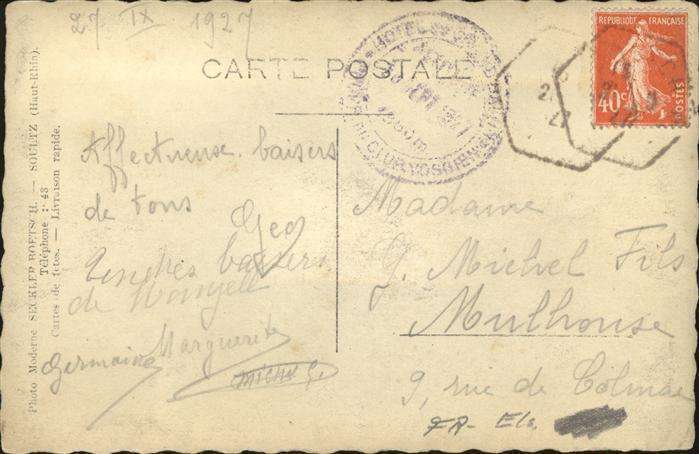 27 IX 1927
CARTE POSTALE
REPUBLIQUE FRANÇAISE
40c
POSTES
CLUB VOSGIEN
Affectueuse baisers
de tous
Geo
Tendres baisers
de
Marguerite
Germaine
Madame
G. Michel Fils
Mulhouse
9, rue de Colmar
Photo Moderne SECKLER-BOETSCH. — SOULTZ (Haut-Rhin).
Téléphone : 43
Cartes de fêtes. — Livraison rapide.